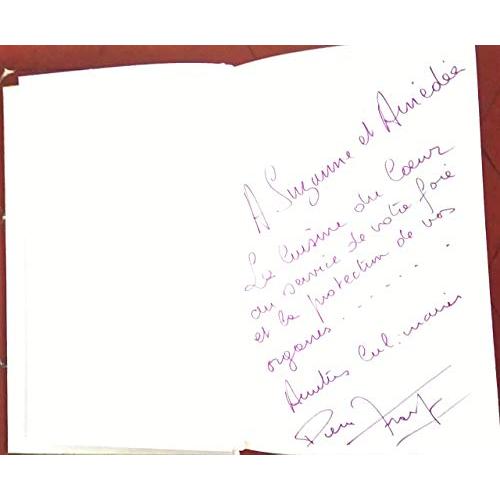 A Suzanne et Amédée
La Cuisine du Coeur
au service de votre foie
et la protection de vos
organes.......
Amitiés Culinaires
Pierre